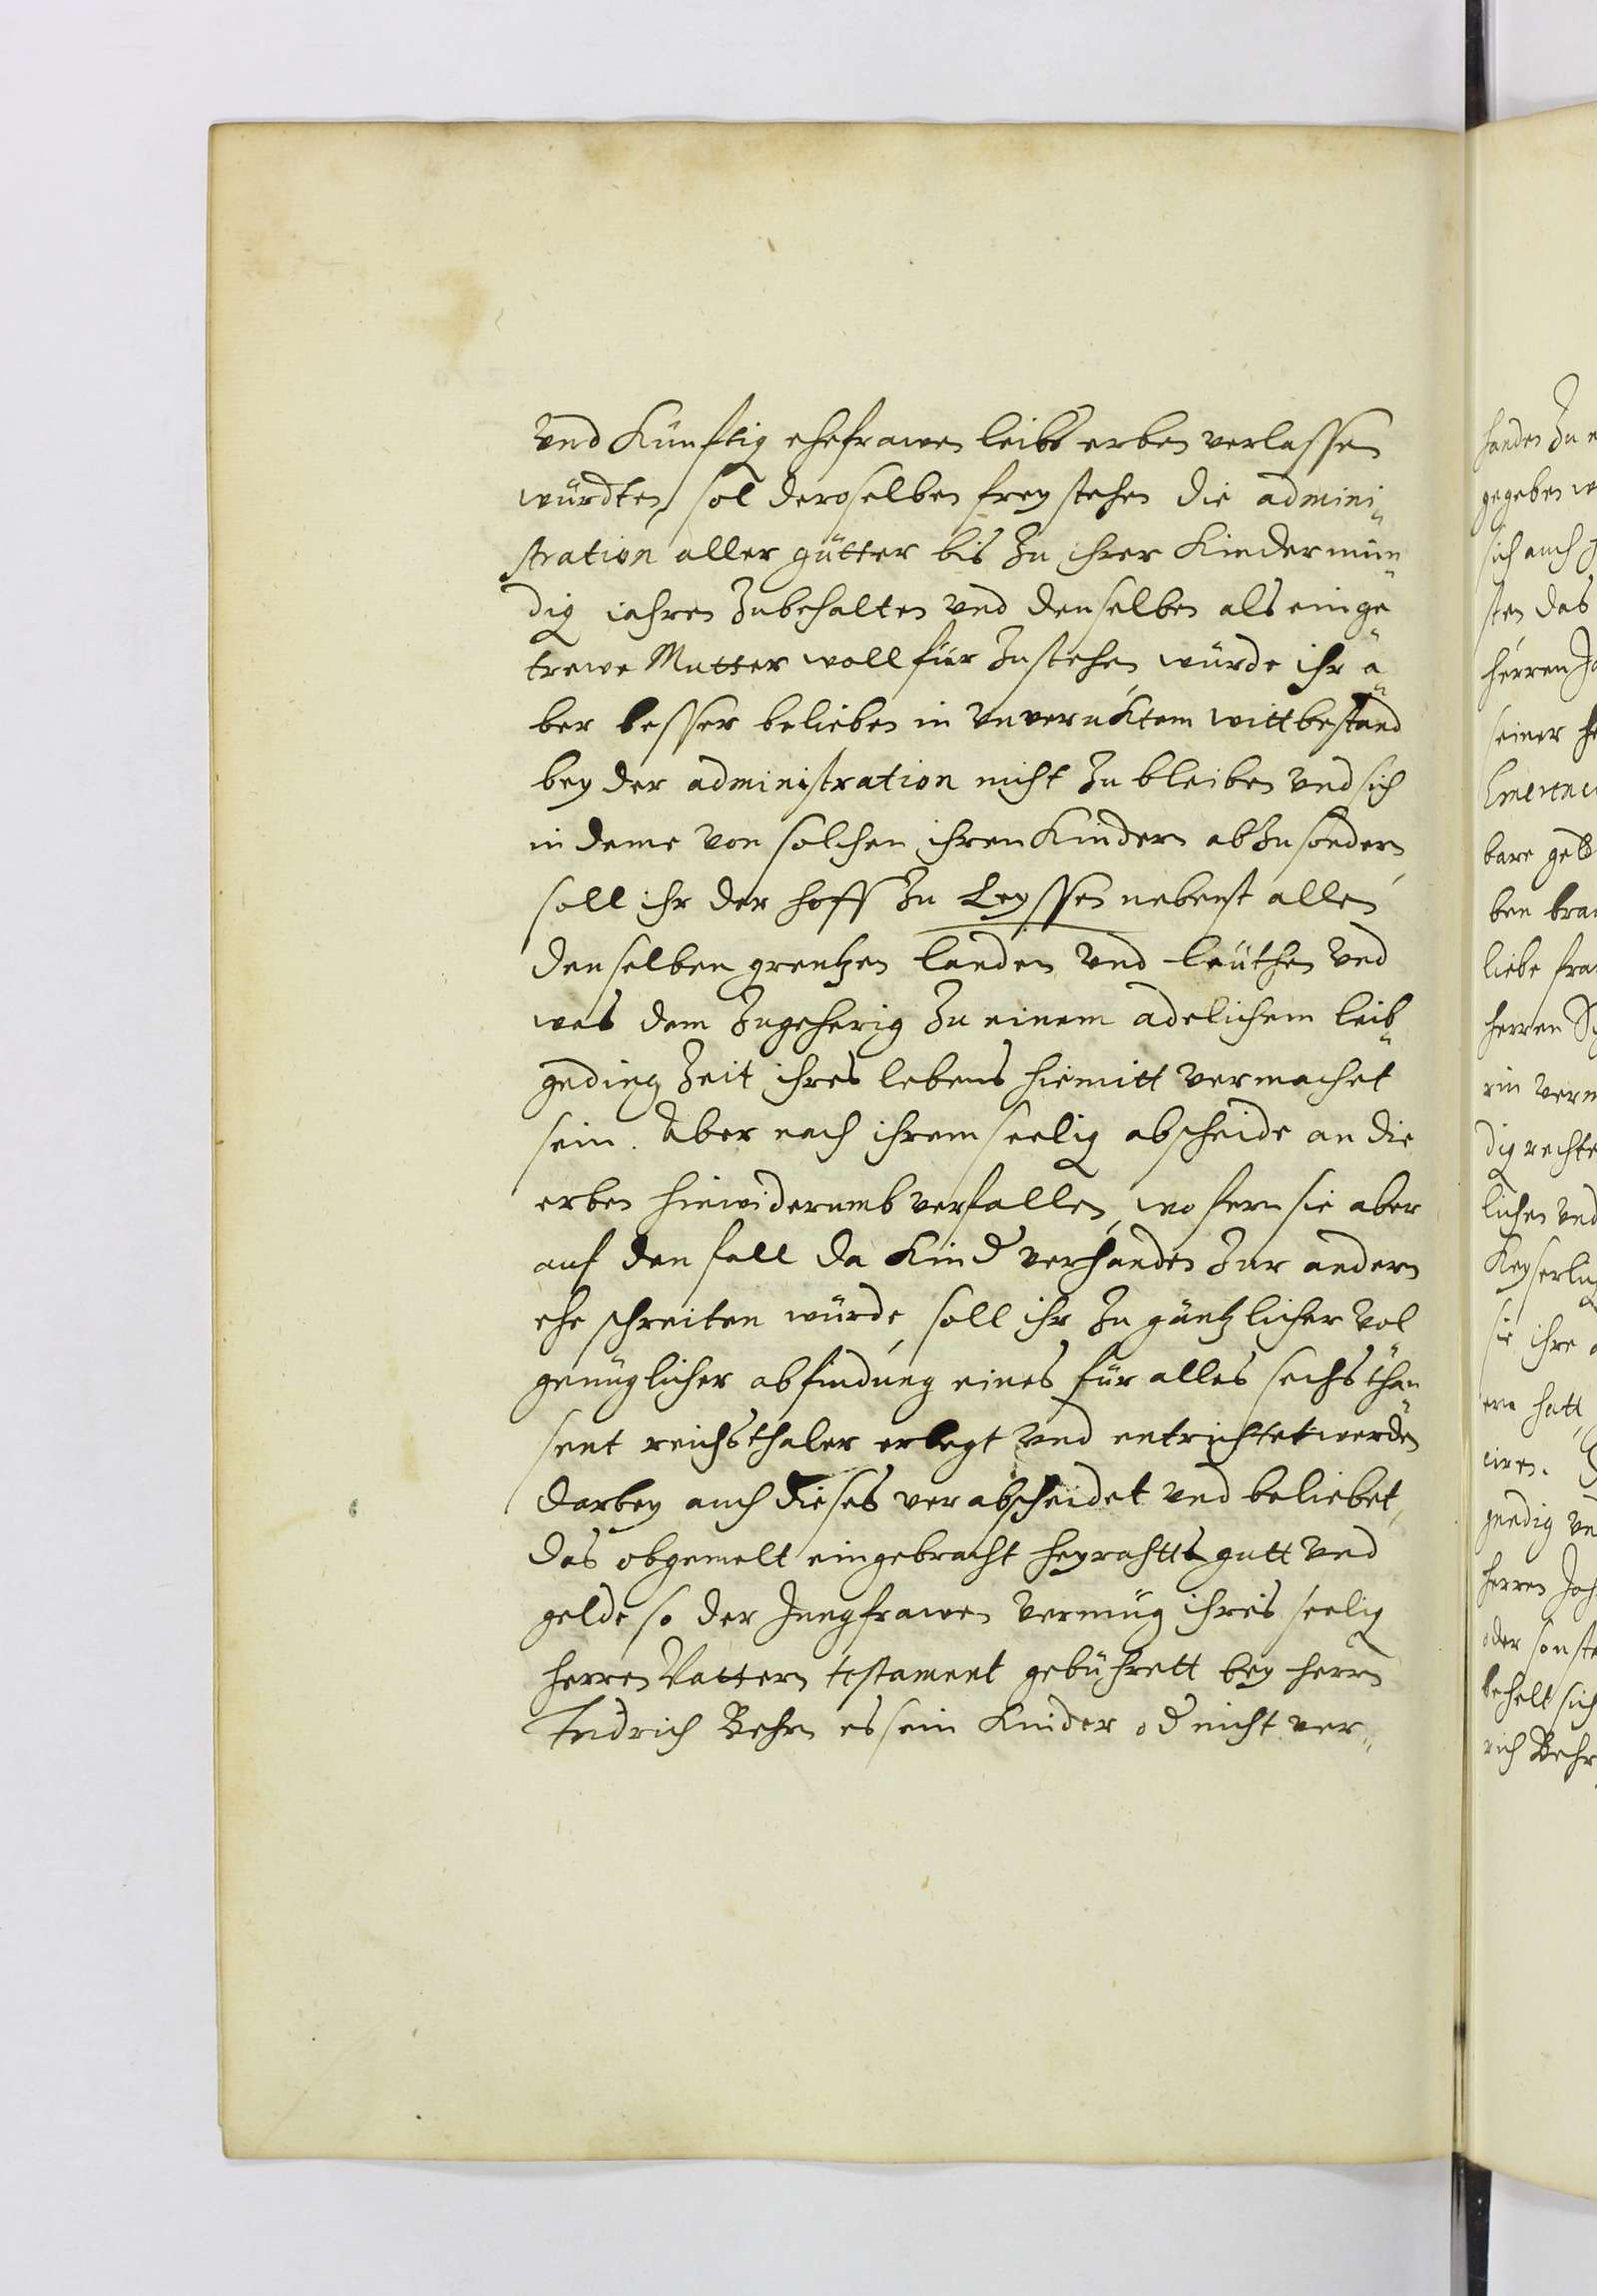 Vnd Künfftig ehefrawen leibs erben verlassen
würdten, sol deroselben frey stehen die admini-
stration aller gütter bis zu ihrer Kinder mün-
dig iahren zubehalten vnd denselben als ein ge-
trewe Mutter woll fürzustehen, würde ihr a-
ber besser belieben in vnveruktem wittbestand
bey der administration nicht zu bleiben vnd sich
in deme von solchen ihren Kindern abzusondern,
soll ihr der hoff zu Leyssen nebenst allen
denselben grentzen landen vnd leüthen vnd
was dem zugeherig zu einem adelichem leib-
geding zeit ihres lebens hiemitt vermachet
sein. Aber nach ihrem seelig abscheide an die
erben hinwiderumb verfallen, wo fern sie aber
auf den fall da Kind verhanden zur andern
ehe schreiten würde, soll ihr zu gäntzlicher vol
genüglicher abfindung eines für alles sechs thau-
sent reichsthaler erlegt vnd entrichtet werden
darbey auch dieses verabscheidet vnd beliebet,
das obgemelt eingebracht heyrahtts gutt vnd
gelde so der Jungfrawen vermüg ihres seelig
herren Vattern testament gebührett bey herrn
Indrich Behrn es sein Kinder od nicht ver-
handen zu
gegeben
sich auch
sten das
herren
seiner
bare geld
ben
liebe
herren
ein verm
dig rechte
lichen vnd
Keyserling
sie ihre
ern hatt,
gnedig
herren Joh
oder sonste
behelt sich
rich Behr